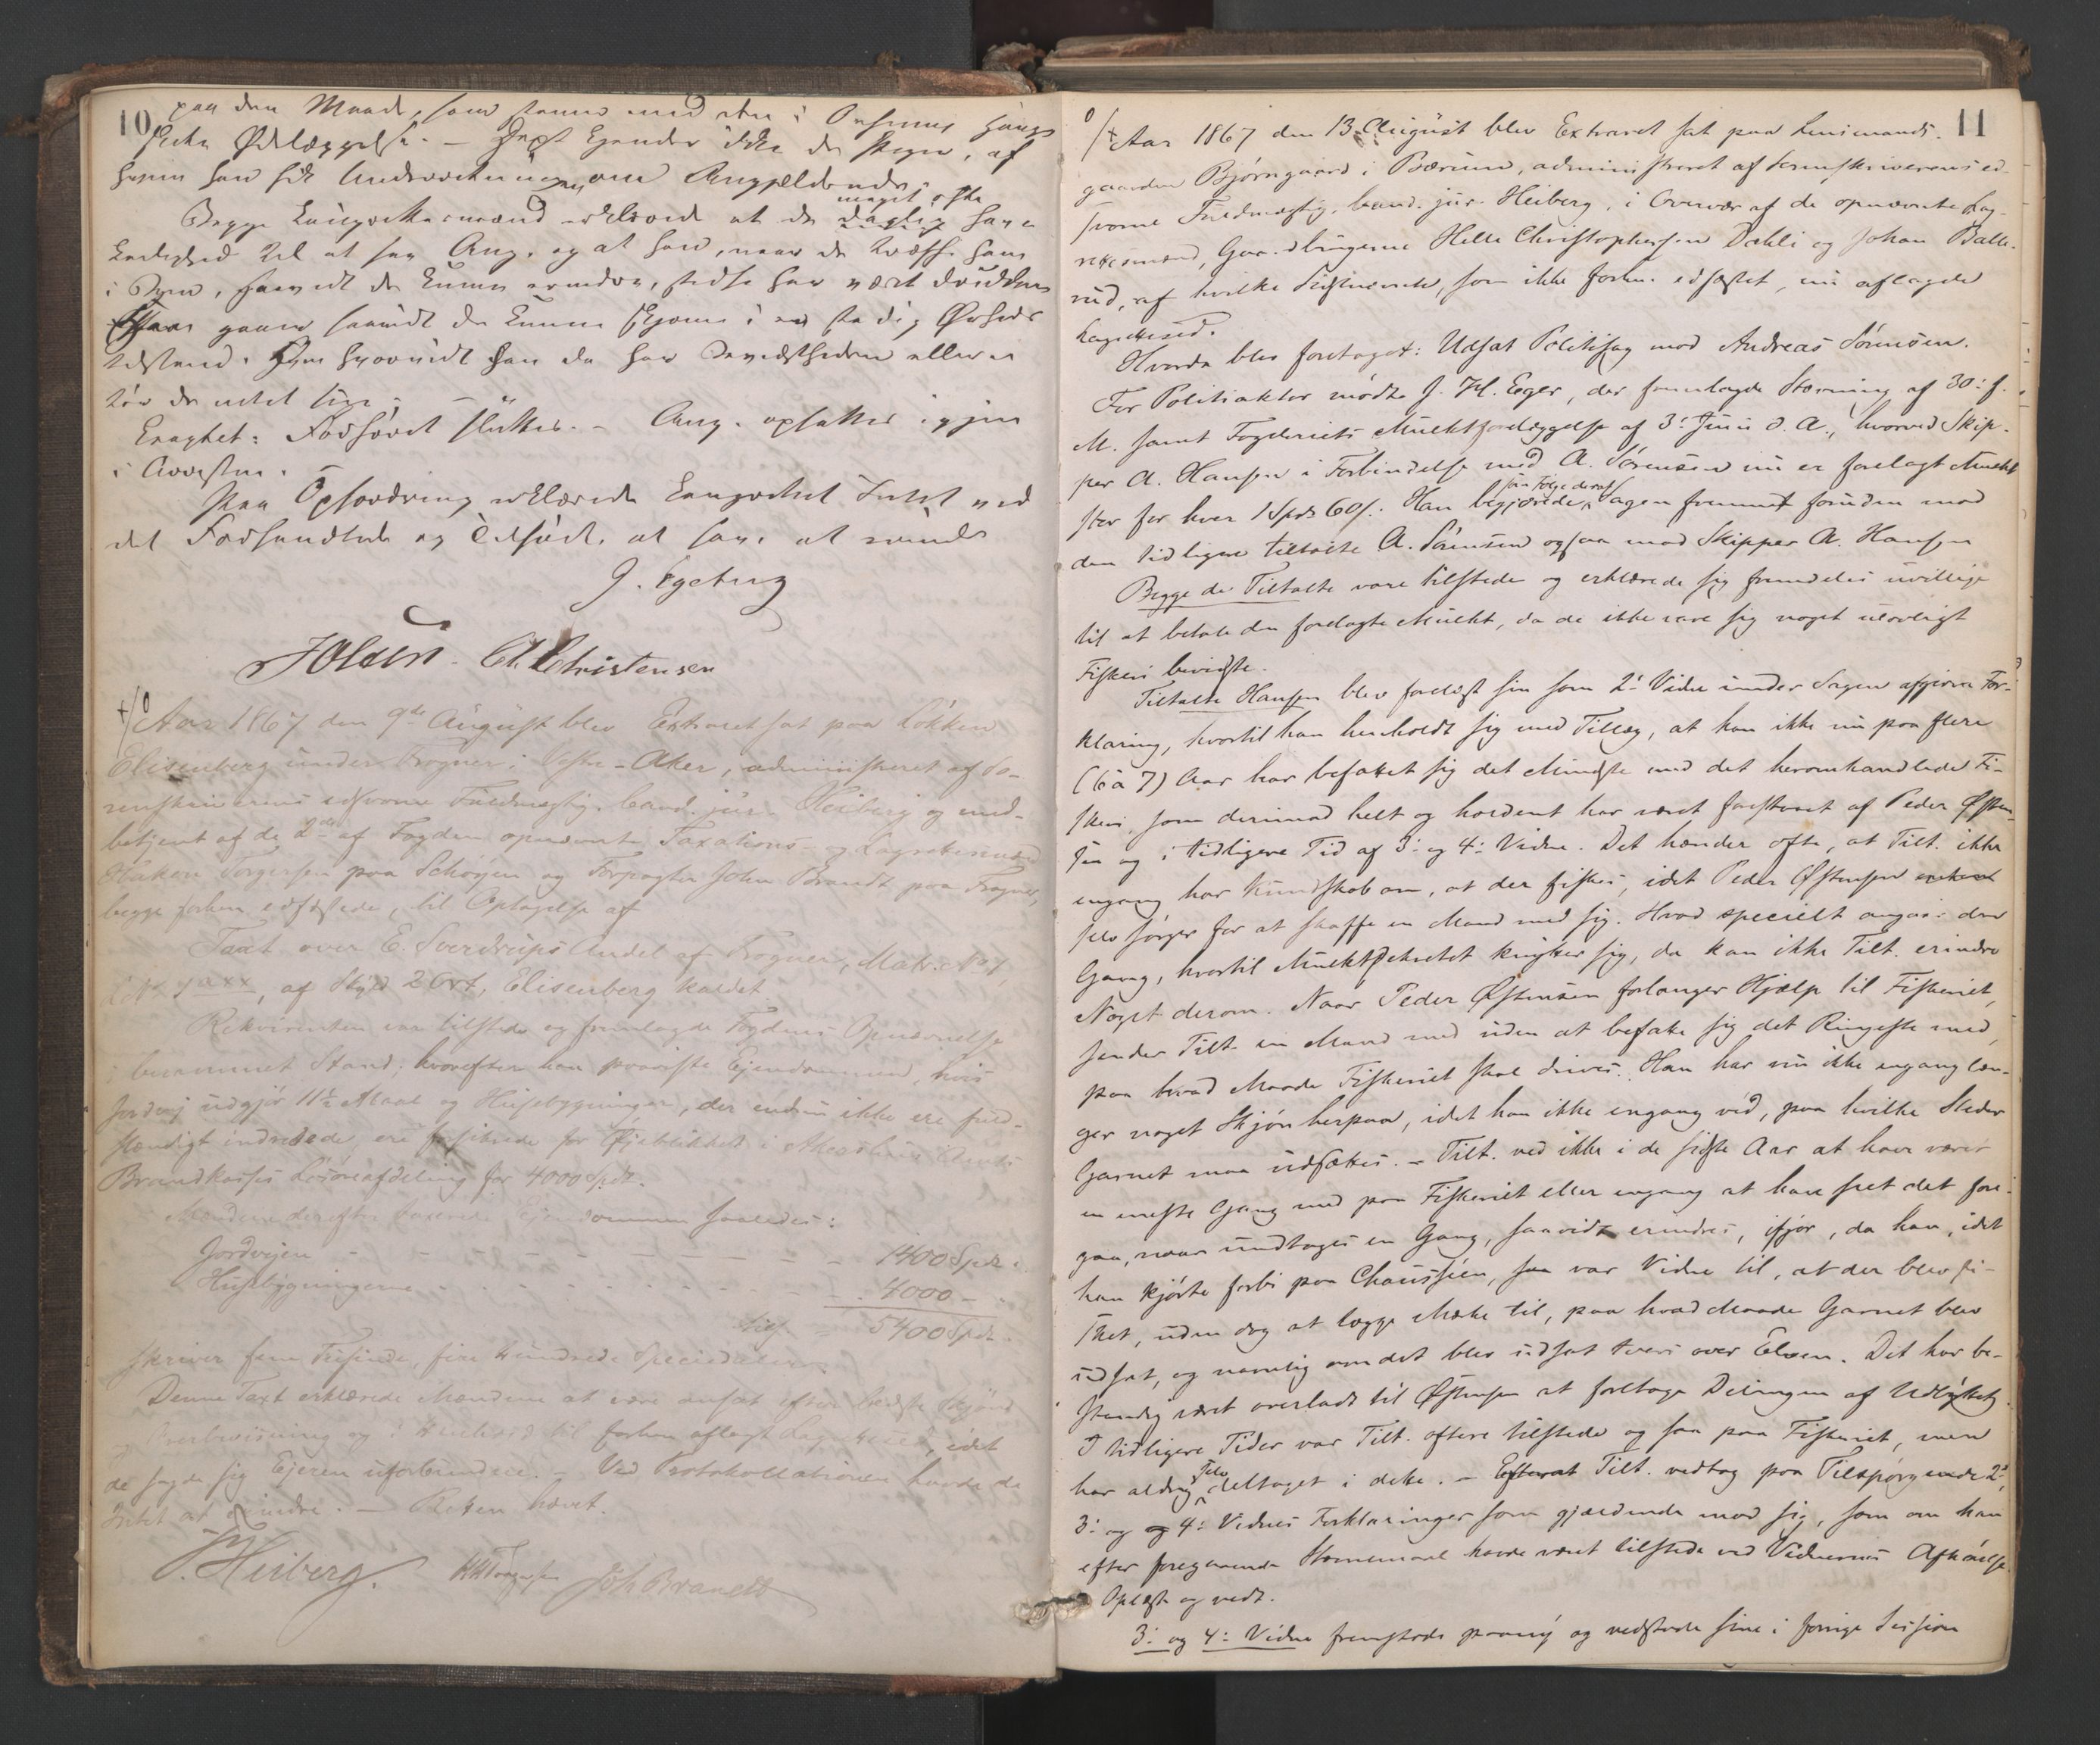 10
paa den Maade, som
skete Ødelæggelse. – ikke de Penge, af
hvem han fik Underretning om Angjeldende;
meget ofte
Begge erklærede at de daglig have
Leilighed til at see Ang. og at han, naar de træffe ham
i Byen, saavidt de kunne erindre, stedse har været drukken
saavidt de kunne skjønne i en stadig
tilstand. Om hvorvidt han da har Bevidstheden eller ei
tør de intet sige.
Eragtet: Forhøret sluttes. – Ang. opsattes igjen
i Arresten.
Paa Opfordring erklærede Intet ved
det Forhandlede og Tilførte at have at erindre
J. Egeberg
JOlsen. A. Christensen
Aar 1867 den 9de August blev Extraret sat paa Løkken
Elisenberg under Frogner i Vestre-Aker, administreret af So-
renskriverens edsvorne Fuldmægtig, Cand. jur. Heiberg og med-
betjent af de 2de af Fogden opnævnte Taxations- og Lagrettesmænd
Haken Torgersen paa Schøyen og Forpagter John Brandt paa Frogner,
begge forhen edfæstede, til Optagelse af
Taxt over E. Sverdrups Andel af Frogner, Matr. No 1,
af Skyld 2 Ort, Elisenberg kaldet.
Rekvirenten var tilstede og fremlagde Fogdens Opnævnelse
i beskrevet Stand, hvorefter han paaviste Ejendommen, hvis
Jordvej udgjør 11½ Maal og Husebygninger, der endnu ikke ere fuld-
stændigt indredede, ere forsikrede for Øjeblikket i Akershus Amts
Brandkasses Løsøreafdeling for 4000 Spd.
Mændene derefter taxerede Ejendommen saaledes:
Jordvejen – – – – – – – 1400 Spd.
Husebygningerne – – – – – – 4000 –
Tils. – 5400 Spd.
skriver fem Tusinde, fire Hundrede Speciedaler.
Denne Taxt erklærede Mændene at være ansat efter bedste Skjøn
og Overbevisning og i Henhold til forhen aflagt Lagretteed, idet
de sagde sig Ejeren uforbundne. – Ved Protokollationen havde de
Intet at erindre. – Retten hævet.
J. Heiberg. HTorgersen Joh Brandt
11
Aar 1867 den 13. August blev Extraret sat paa Lensmands-
gaarden Bjørngaard i Bærum, administreret af Sorenskriverens ed-
svorne Fuldmægtig, Cand. jur. Heiberg, i Overvær af de opnævnte Lag-
rettesmænd, Gaardbrugerne Helle Christophersen Dæhli og Johan Balle-
rud, af hvilke Sidstnævnte, som ikke forhen edfæstet, nu aflagde
Lagretteed.
Hvorda blev foretaget: Udsat Politisag mod Andreas Sørensen.
For Politiaktor mødte J. H. Eger, der fremlagde Stævning af 30: f.
M. samt Fogderiets Mulktforelæggelse af 3: Juni d. A., hvorved Skip-
per A. Hansen i Forbindelse med A. Sørensen nu er forelagt Mulkt
stor for hver 1 Spd 60 s. Han begjærede som Følge deraf Sagen fremmet foruden mod
den tidligere tiltalte A. Sørensen ogsaa mod Skipper A. Hansen
Begge de Tiltalte vare tilstede og erklærede sig fremdeles uvillige
til at betale den forelagte Mulkt, da de ikke vare sig noget ulovligt
Fiskeri bevidste.
Tiltalte Hansen blev forelæst sin som 2: Vidne under Sagen afgivne For-
klaring, hvortil han henholdt sig med Tillæg, at han ikke nu paa flere
(6 à 7) Aar har befattet sig det Mindste med det heromhandlede Fi-
skeri, som derimod helt og holdent har været forestaaet af Peder Østen-
sen og i tidligere Tid af 3: og 4: Vidne. Det hænder ofte, at Tilt. ikke
engang har Kundskab om, at der fiskes, idet Peder Østensen
selv sørger for at skaffe en Mand med sig. Hvad specielt angaar den
Gang, hvortil Mulktdekretet knytter sig, da kan ikke Tilt. erindre
Noget derom. Naar Peder Østensen forlanger Hjælp til Fiskeriet,
sender Tilt. en Mand med uden at befatte sig det Ringeste med,
paa hvad Maade Fiskeriet skal drives. Han har nu ikke engang læn-
ger noget Skjøn herpaa, idet han ikke engang véd, paa hvilke Steder
Garnet maa udsættes. – Tilt. ved ikke i de sidste Aar at have været
en eneste Gang med paa Fiskeriet eller engang at have seet det fore-
gaa, naar undtages en Gang, saavidt erindres, ifjor, da han, idet
han kjørte forbi paa Chausséen, saa var Vidne til, at der blev fi-
sket, uden dog at lægge Mærke til, paa hvad Maade Garnet blev
udsat, og navnlig om det blev udsat tvers over Elven. Det har be-
standig været overladt til Østensen at foretage Delingen af Udbyttet.
I tidligere Tider var Tilt. oftere tilstede og saa paa Fiskeriet, men
har aldrig selv deltaget i dette. – Efterat Tilt. vedtog paa Tilspørgende 2:,
3: og 4: Vidnes Forklaringer som gjældende mod sig, som om han
efter foregaaende Stævnemaal havde været tilstede ved Vidnernes Afhørelse.
Oplæst og vedt.
3: og 4: Vidne fremstode paany og vedstode sine i forrige Session